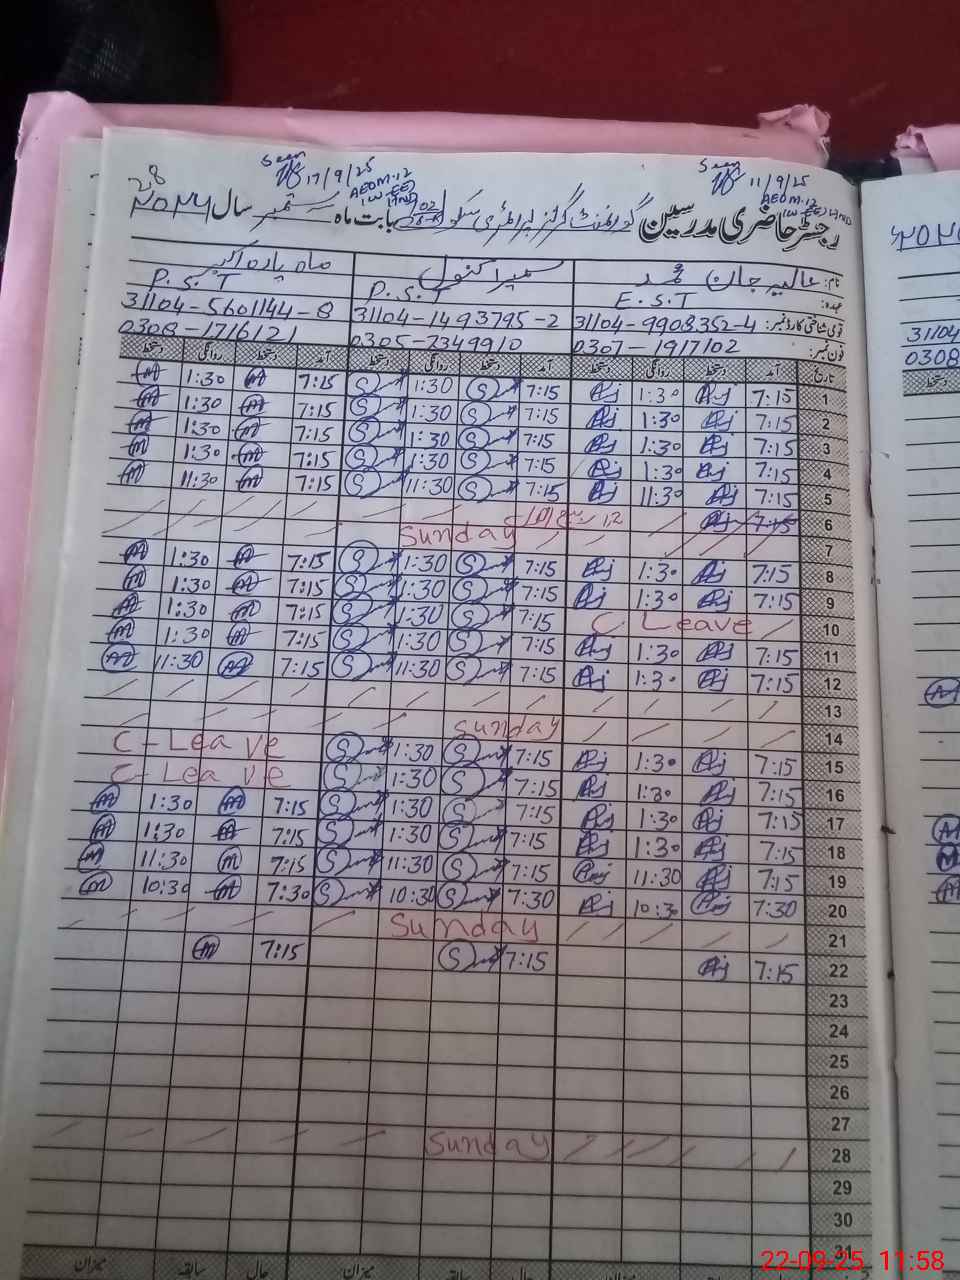 Seen 11/9/25
AEOM.12
(W-EE) LHND
Seen 17/9/25
AEOM.12
(W-EE)
LHND
رجسٹر حاضری مدرسین گورنمنٹ گرلز بابت ماہ ستمبر سال
نام: عالیہ جان محمد سمیرا کنول ماہ پارہ
عہدہ: E.S.T P.S.T P.S.T
قومی شناختی کارڈ نمبر: 31104-9908352-4 31104-1493795-2 31104-5601144-8
فون نمبر: 0307-1917102 0305-7349910 0308-1716121
تاریخ آمد دستخط روانگی دستخط آمد دستخط روانگی دستخط آمد دستخط روانگی دستخط
1 7:15 1:30 7:15 1:30 7:15 1:30
2 7:15 1:30 7:15 1:30 7:15 1:30
3 7:15 1:30 7:15 1:30 7:15 1:30
4 7:15 1:30 7:15 1:30 7:15 1:30
5 7:15 11:30 7:15 11:30 7:15 11:30
6 7:15 12
7 Sunday
8 7:15 1:30 7:15 1:30 7:15 1:30
9 7:15 1:30 7:15 1:30 7:15 1:30
10 C Leave 7:15 1:30 7:15 1:30
11 7:15 1:30 7:15 1:30 7:15 1:30
12 7:15 1:30 7:15 11:30 7:15 11:30
13
14 Sunday
15 7:15 1:30 7:15 1:30 C-Leave
16 7:15 1:30 7:15 1:30 C-Leave
17 7:15 1:30 7:15 1:30 7:15 1:30
18 7:15 1:30 7:15 1:30 7:15 1:30
19 7:15 11:30 7:15 11:30 7:15 11:30
20 7:30 10:30 7:30 10:30 7:30 10:30
21 Sunday
22 7:15 7:15 7:15
23
24
25
26
27
28 Sunday
29
30
31
حال سابقہ میزان حال سابقہ میزان
31104
0308
دستخط
22-09-25 11:58